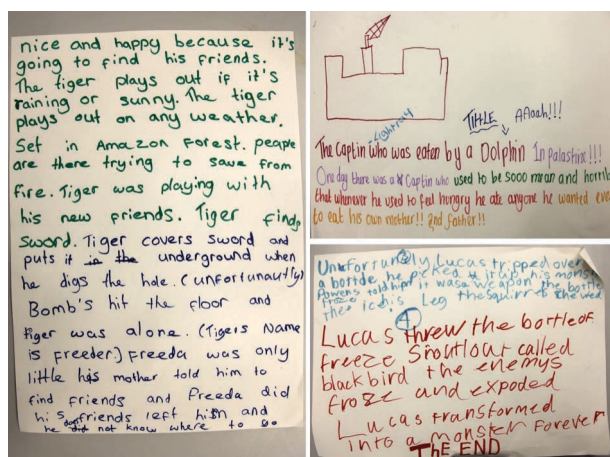 nice and happy because it's
going to find his friends.
The tiger plays out if it's
raining or sunny. The tiger
plays out on any weather.
Set in Amazon Forest. people
are there trying to save from
fire. Tiger was playing with
his new friends. Tiger finds
sword. Tiger covers sword and
puts it in the underground when
he digs the hole. (unfortunautly)
Bomb's hit the floor and
tiger was alone. (Tigers Name
is freeder.) Freeda was only
little his mother told him to
find friends and Freeda did
his friends left him and
he not know where to go
TITLE AAaah!!!
The Captin who was eaten by a Dolphin In palastine!!!
One day there was a Captin who used to be sooo mean and horrible
that whenever he used to feel hungry he ate anyone he wanted even
to eat his own mother!! and father!!
Lucas tripped over
a bottle he picked it up his monster
powers told him it was a weapon the bottle
froze his Leg the squirrel chewed
4
Lucas threw the bottle of
freeze called
black bird the enemys
froze and expoded
Lucas transformed
into a monster Forever
ThE END